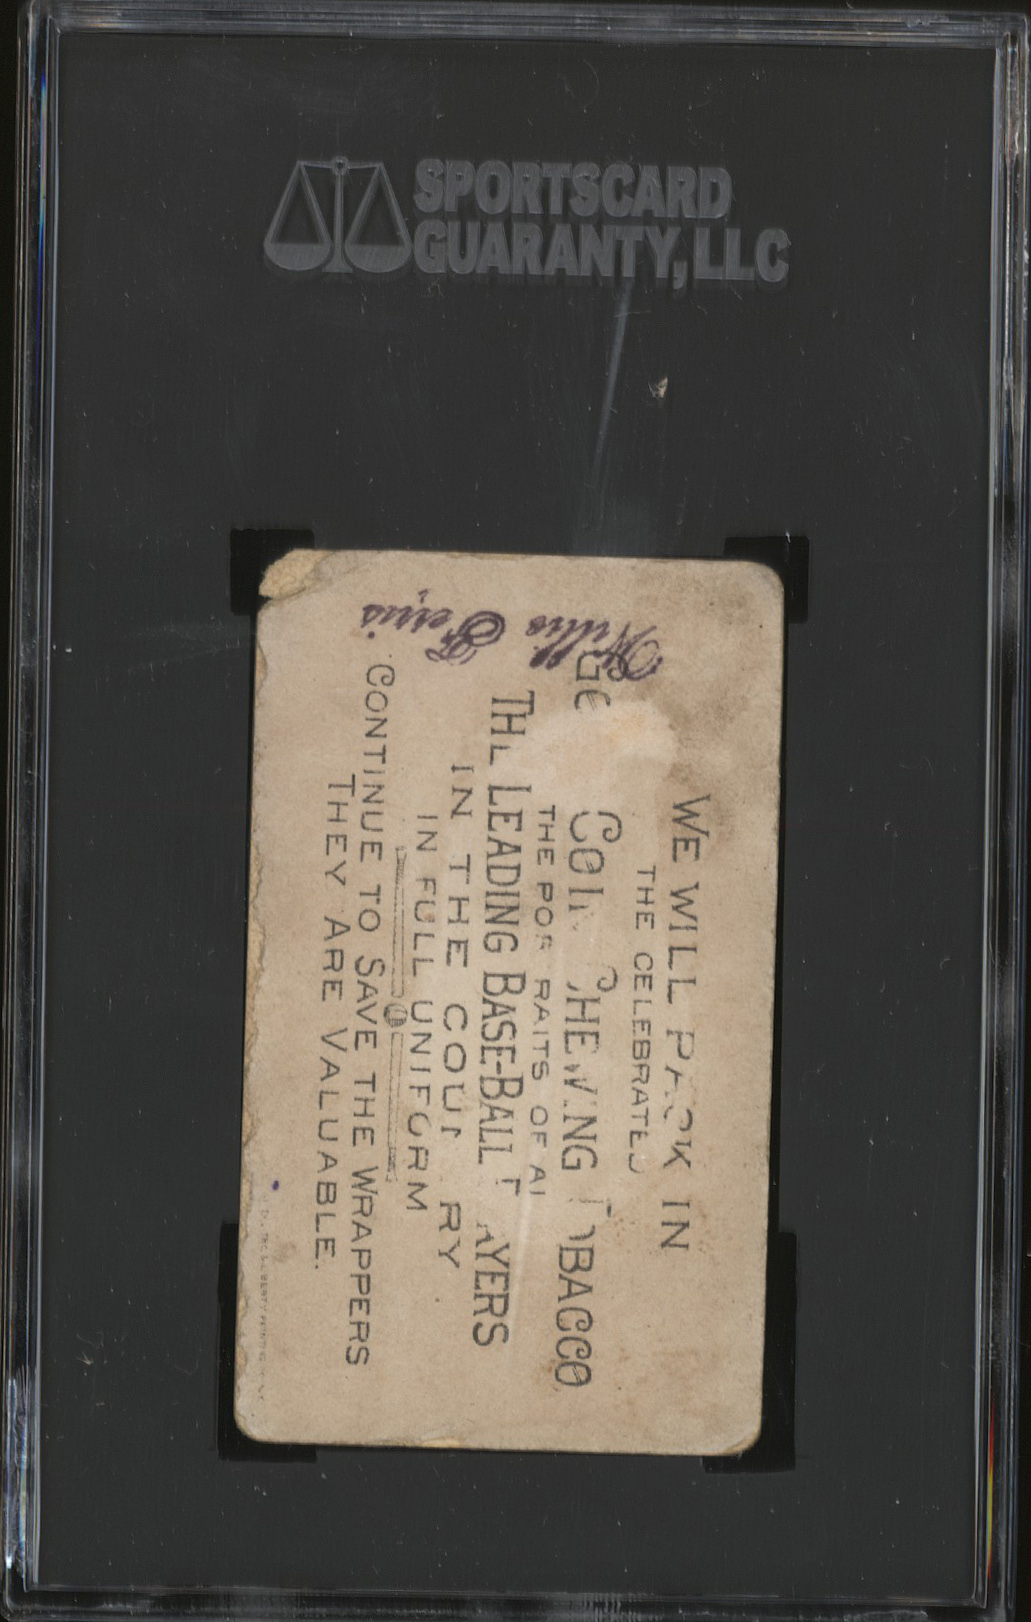 SPORTSCARD
GUARANTY, LLC
WE WILL PACK IN
THE CELEBRATED
GO COIN CHEWING TOBACCO
THE PORTRAITS OF Al
THE LEADING BASE-BALL PLAYERS
IN THE COUNTRY
IN FULL UNIFORM
CONTINUE TO SAVE THE WRAPPERS
THEY ARE VALUABLE.
Willie Ferris